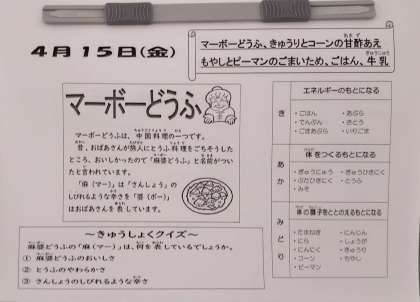 4月15日(金)
マーボーどうふ、きゅうりとコーンの甘酢あえ
もやしとピーマンのごまいため、ごはん、牛乳
マーボーどうふ
マーボーどうふは、中国料理の一つです。
昔、おばあさんが旅人にとうふ料理をごちそうした
ところ、おいしかったので「麻婆どうふ」と名前がつい
たと言われています。
「麻(マー)」は「さんしょう」の
しびれるような辛さを「婆(ボー)」
はおばあさんを表しています。
～きゅうしょくクイズ～
麻婆どうふの「麻(マー)」は、何を表しているでしょうか。
① マーボーどうふのおいしさ
② とうふのやわらかさ
③ さんしょうのしびれるような辛さ
き
エネルギーのもとになる
・ごはん ・あぶら
・でんぷん ・さとう
・ごまあぶら ・いりごま
あか
体をつくるもとになる
・ぎゅうにゅう ・ぎゅうひきにく
・ぶたひきにく ・とうふ
・みそ
みどり
体の調子をととのえるもとになる
・たまねぎ ・にんじん
・にら ・しょうが
・にんにく ・きゅうり
・コーン ・もやし
・ピーマン